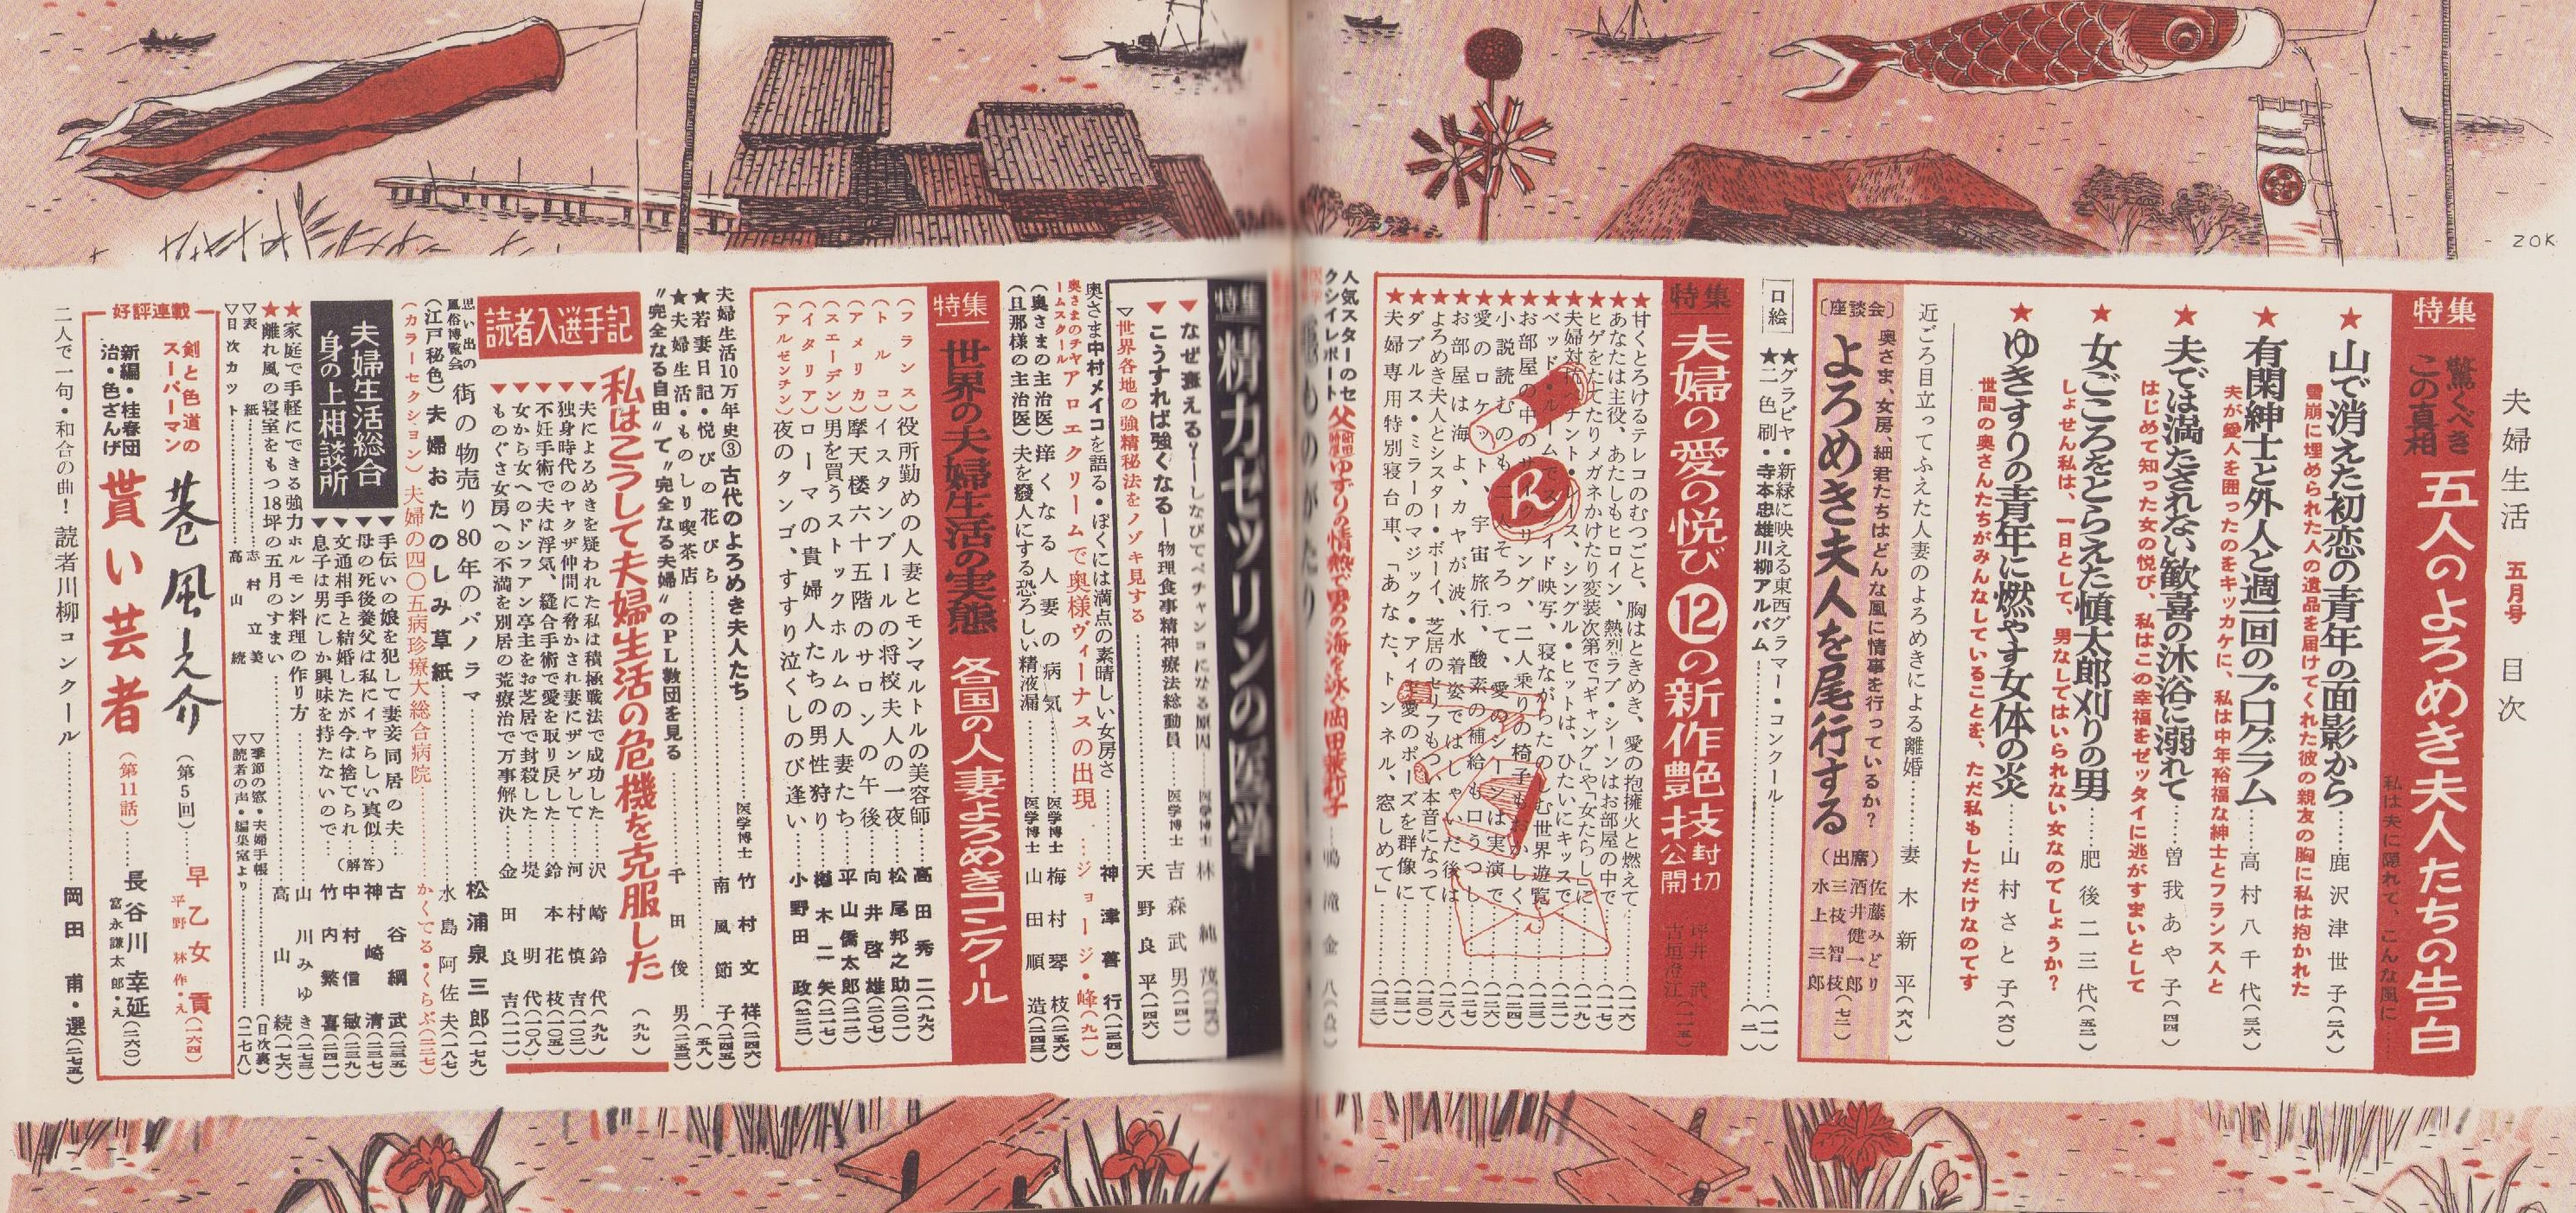 夫婦生活 五月号 目次
特集
驚くべき
この真相
五人のよろめき夫人たちの告白
私は夫に隠れて、こんな風に……
★山で消えた初恋の青年の面影から……鹿沢津世子(二八)
雪崩に埋められた人の遺品を届けてくれた彼の親友の胸に私は抱かれた
★有閑紳士と外人と週二回のプログラム……高村八千代(三六)
夫が愛人を囲ったのをキッカケに、私は中年裕福な紳士とフランス人と
★夫では満たされない歓喜の沐浴に溺れて……曽我あや子(四四)
はじめて知った女の悦び、私はこの幸福をゼッタイに逃がすまいとして
★女ごころをとらえた慎太郎刈りの男……肥後二三代(五二)
しょせん私は、一日として、男なしではいられない女なのでしょうか?
★ゆきずりの青年に燃やす女体の炎……山村さと子(六〇)
世間の奥さんたちがみんなしていることを、ただ私もしただけなのです
近ごろ目立ってふえた人妻のよろめきによる離婚……妻木新平(六八)
〔座談会〕
奥さま、女房、細君たちはどんな風に情事を行っているか?
よろめき夫人を尾行する
(出席)
佐藤みどり
酒井健一郎
三枝智枝
水上三郎
(七二)
口絵
★グラビヤ・新緑に映える東西グラマー・コンクール……(一一)
★二色刷・寺本忠雄川柳アルバム……(二一)
特集
夫婦の愛の悦び⑫の新作艶技
封切
公開
坪井武
古垣澄江
(一一五)
★甘くとろけるテレコのむつごと、胸はときめき、愛の抱擁火と燃えて……(一一六)
★あなたは主役、あたしもヒロイン、熱烈ラブ・シーンはお部屋の中で……(一一七)
★ヒゲをたてたりメガネかけたり変装次第で「ギャング」や「女たらし」に……
★夫婦対抗ペナント・レース、シングル・ヒットは、ひたいにキッスで……
★ベッド・ルームでスライド映写、寝ながらたのしむ世界遊覧
★お部屋の中のサイクリング、二人乗りの椅子もおかしく
★小説読むのも二人そろって、愛のシーンは実演で
★愛のロケット、宇宙旅行、酸素の補給も口うつし
★お部屋は海よ、カヤが波、水着姿ではしゃいだ後は
★よろめき夫人とシスター・ボーイ、芝居のセリフもつい本音になって
★ダブルス・ミラーのマジック・アイ、愛のポーズを群像に
★夫婦専用特別寝台車、「あなた、トンネル、窓しめて」
人気スターのセ
クシイレポート
特集
精力セツリンの医学
▼なぜ衰える?―しなびてペチャンコになる原因……医学博士 林
▼こうすれば強くなる―物理食事精神療法総動員……医学博士 吉森武男
▽世界各地の強精秘法をノゾキ見する……天野良平
奥さま中村メイコを語る・ぼくには満点の素晴しい女房さ……神津善行
奥さまのチャ
ームスクール
アロエクリームで奥様ヴィーナスの出現……ジョージ・峰(九一)
(奥さまの主治医) 痒くなる人妻の病気……医学博士 梅村琴枝
(旦那様の主治医) 夫を廢人にする恐ろしい精液漏……医学博士 山田順造
特集
世界の夫婦生活の実態
各国の人妻よろめきコンクール
(フランス) 役所勤めの人妻とモンマルトルの美容師……高田秀二(一九六)
(トルコ) イスタンブールの将校夫人の一夜……松尾邦之助(二〇一)
(アメリカ) 摩天楼六十五階のサロンの午後……向井啓雄(二〇七)
(スエーデン) 男を買うストックホルムの人妻たち……平山僑太郎(二一二)
(イタリア) ローマの貴婦人たちの男性狩り……樹木二矢(二一七)
(アルゼンチン) 夜のタンゴ、すすり泣くしのび逢い……小野田政(二二二)
夫婦生活10万年史③ 古代のよろめき夫人たち……医学博士 竹村文祥(二四六)
★若妻日記・悦びの花びら……南風節子
★夫婦生活・ものしり喫茶店……(五八)
“完全なる自由”で“完全なる夫婦”のPL教団を見る……千田俊男
読者入選手記
私はこうして夫婦生活の危機を克服した
(九九)
▼夫によろめきを疑われた私は積極戦法で成功した……沢崎鈴代(九九)
▼独身時代のヤクザ仲間に脅かされ妻にザンゲして……河村慎吉(一〇二)
▼不妊手術で夫は浮気、縫合手術で愛を取り戻した……鈴本花枝(一〇五)
▼女から女へのドンファン亭主をお芝居で封殺した……堤明代(一〇八)
▼ものぐさ女房への不満を別居の荒療治で万事解決……金田良吉(一一一)
思い出の
風俗博覧会
街の物売り80年のパノラマ……松浦泉三郎(一七九)
(江戸秘色) 夫婦おたのしみ草紙……水島阿佐夫(一八七)
(カラーセクション) 夫婦の四〇五病珍療大総合病院……かくてる・くらぶ(二二七)
夫婦生活総合
身の上相談所
▼手伝いの娘を犯して妻妾同居の夫……古谷綱武
▼母の死後養父は私にイヤらしい真似……神崎清
▼文通相手と結婚したが今は捨てられ……中村信敏
▼息子は男にしか興味を持たないので……竹内繁喜
(解答)
★家庭で手軽にできる強力ホルモン料理の作り方……山川みゆき(二七三)
★離れ風の寝室をもつ18坪の五月のすまい……高山続(一七六)
▽表紙……志村立美
▽目次カット……高山続
▽季節の窓・夫婦手帳……(目次裏)
▽読者の声・編集室より……(二七八)
好評連載
剣と色道の
スーパーマン
巷風之介
(第5回)……早乙女貢
平野林作・え
(一六四)
新編・桂春団
治・色ざんげ
貰い芸者
(第11話)……長谷川幸延
富永謙太郎・え
(二六〇)
二人で一句・和合の曲! 読者川柳コンクール……岡田甫・選(二七五)
ZOK